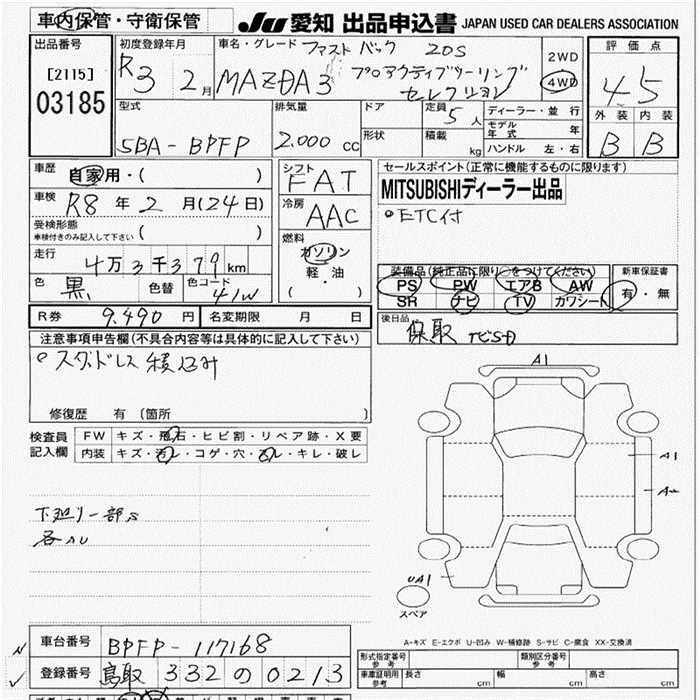 車内保管・守衛保管
JU 愛知 出品申込書 JAPAN USED CAR DEALERS ASSOCIATION
出品番号
[2115]
03185
初度登録年月
R3 2月
車名・グレード ファストバック 20S
MAZDA3 プロアクティブツーリング
セレクション
2WD
4WD
評価点
4.5
外装 内装
B B
型式
5BA-BPFP
排気量
2.000 cc
ドア
形状
定員 5人
積載 kg
ディーラー・並行
モデル年式 年
ハンドル 左・右
車歴 自家用・( )
車検 R8年2月(24日)
受検形態
車検付きのみ記入して下さい ( )
走行 4万3千379km
色 黒 色替 色コード 41W
シフト FAT
冷房 AAC
燃料
ガソリン
軽・油
(・)
セールスポイント(正常に機能するものに限ります)
MITSUBISHIディーラー出品
○ETC付
装備品(純正品に限り○をつけてください)
PS PW エアB AW
SR ナビ TV カワシート
新車保証書
有・無
R券 9.490円 名変期限 月 日
後日品
保取 ナビSD
注意事項申告欄(不具合内容等は具体的に記入して下さい)
○スタッドレス積込み
修復歴 有(箇所 )
検査員
記入欄
FW キズ・飛石・ヒビ割・リペア跡・X要
内装 キズ・汚レ・コゲ・穴・スレ・キレ・破レ
下廻り一部S
各AU
A1
A1
UA1
スペア
A-キズ E-エクボ U-凹み W-補修跡 S-サビ C-腐食 XX-交換済
車台番号 BPFP-117168
登録番号 鳥取 332 の 0213
形式指定番号
参考
類別区分番号
参考
車庫証明用
参考
長さ cm 幅 cm 高さ cm